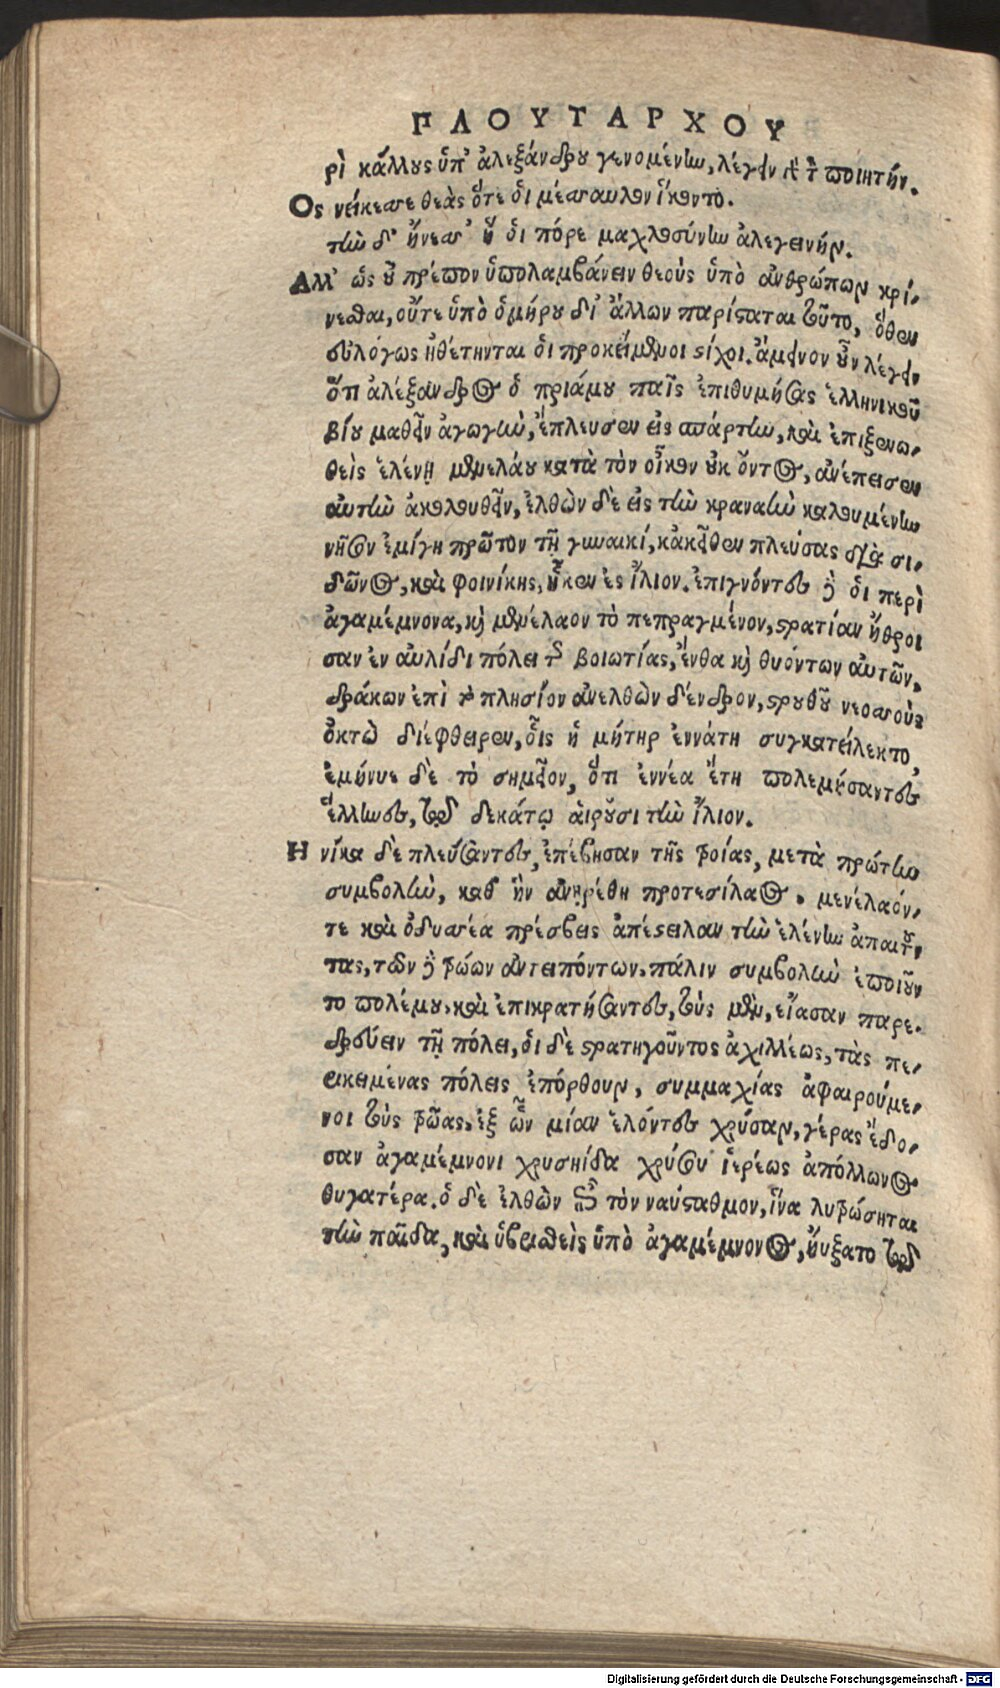 ΠΛΟΥΤΑΡΧΟΥ
ρὶ κάλλους ὑπ' ἀλεξάνδρου γενομένην, λέγειν καὶ τὸν ποιητήν.
Ος νείκεσσε θεὰς ὅτε ὁι μέσσαυλον ἵκοντο.
τὴν δ' ἤνεσσ' ἥ ὁι πόρε μαχλοσύνην ἀλεγεινήν.
Αλλ' ὡς οὐ πρέπον ὑπολαμβάνειν θεοὺς ὑπὸ ἀνθρώπων κρί-
νεσθαι, οὔτε ὑπὸ ὁμήρου δι' ἄλλων παρίσταται τοῦτο, ὅθεν
εὐλόγως ἠθέτηνται ὁι προκείμενοι στίχοι. ἄμεινον οὖν λέγειν
ὅτι ἀλέξανδρος ὁ πριάμου παῖς ἐπιθυμήσας ἑλληνικοῦ
βίου μαθεῖν ἀγωγὴν, ἔπλευσεν εἰς σπάρτην, καὶ ἐπιξενω-
θεὶς ἑλένῃ μενελάου κατὰ τὸν οἶκον οὐκ ὄντος, ἀνέπεισεν
αὐτὴν ἀκολουθεῖν, ἐλθὼν δὲ εἰς τὴν κραναὴν καλουμένην
νῆσον ἐμίγη πρῶτον τῇ γυναικί, κἀκεῖθεν πλεύσας διὰ σι-
δῶνος, καὶ φοινίκης, ἧκεν ἐς ἴλιον. ἐπιγνόντες δὲ ὁι περὶ
ἀγαμέμνονα, καὶ μενέλαον τὸ πεπραγμένον, στρατίαν ἤθροι
σαν ἐν αὐλίδι πόλει τῆς βοιωτίας, ἔνθα καὶ θυόντων αὐτῶν,
δράκων ἐπὶ τὸ πλησίον ἀνελθὼν δένδρον, στρουθοῦ νεοσσοὺς
ὀκτὼ διέφθειρεν, οἷς ἡ μήτηρ ἐννάτη συγκατείλεκτο,
ἐμήνυε δὲ τὸ σημεῖον, ὅτι ἐννέα ἔτη πολεμήσαντες
ἕλληνες, τῷ δεκάτῳ αἱροῦσι τὴν ἴλιον.
Η νίκα δὲ πλεύσαντες, ἐπέβησαν τῆς τροίας, μετὰ πρώτην
συμβολὴν, καθ' ἣν ἀνῃρέθη προτεσίλαος, μενέλαόν-
τε καὶ ὀδυσσέα πρέσβεις ἀπέστειλαν τὴν ἑλένην ἀπαιτοῦν
τας, τῶν δὲ τρώων ἀντειπόντων, πάλιν συμβολὴν ἐποιοῦν
το πολέμου, καὶ ἐπικρατήσαντες, τοὺς μὲν, εἴασαν παρε-
δρεύειν τῇ πόλει, ὁι δὲ στρατηγοῦντος ἀχιλλέως, τὰς πε-
ρικειμένας πόλεις ἐπόρθουν, συμμαχίας ἀφαιρούμε-
νοι τοὺς τρῶας, ἐξ ὧν μίαν ἑλόντες χρύσαν, γέρας ἔδο-
σαν ἀγαμέμνονι χρυσηίδα χρύσου ἱερέως ἀπόλλωνος
θυγατέρα. ὁ δὲ ἐλθὼν ἐπὶ τὸν ναύσταθμον, ἵνα λυτρώσηται
τὴν παῖδα, καὶ ὑβρισθεὶς ὑπὸ ἀγαμέμνονος, ηὔξατο τῷ
Digitalisierung gefördert durch die Deutsche Forschungsgemeinschaft - DFG